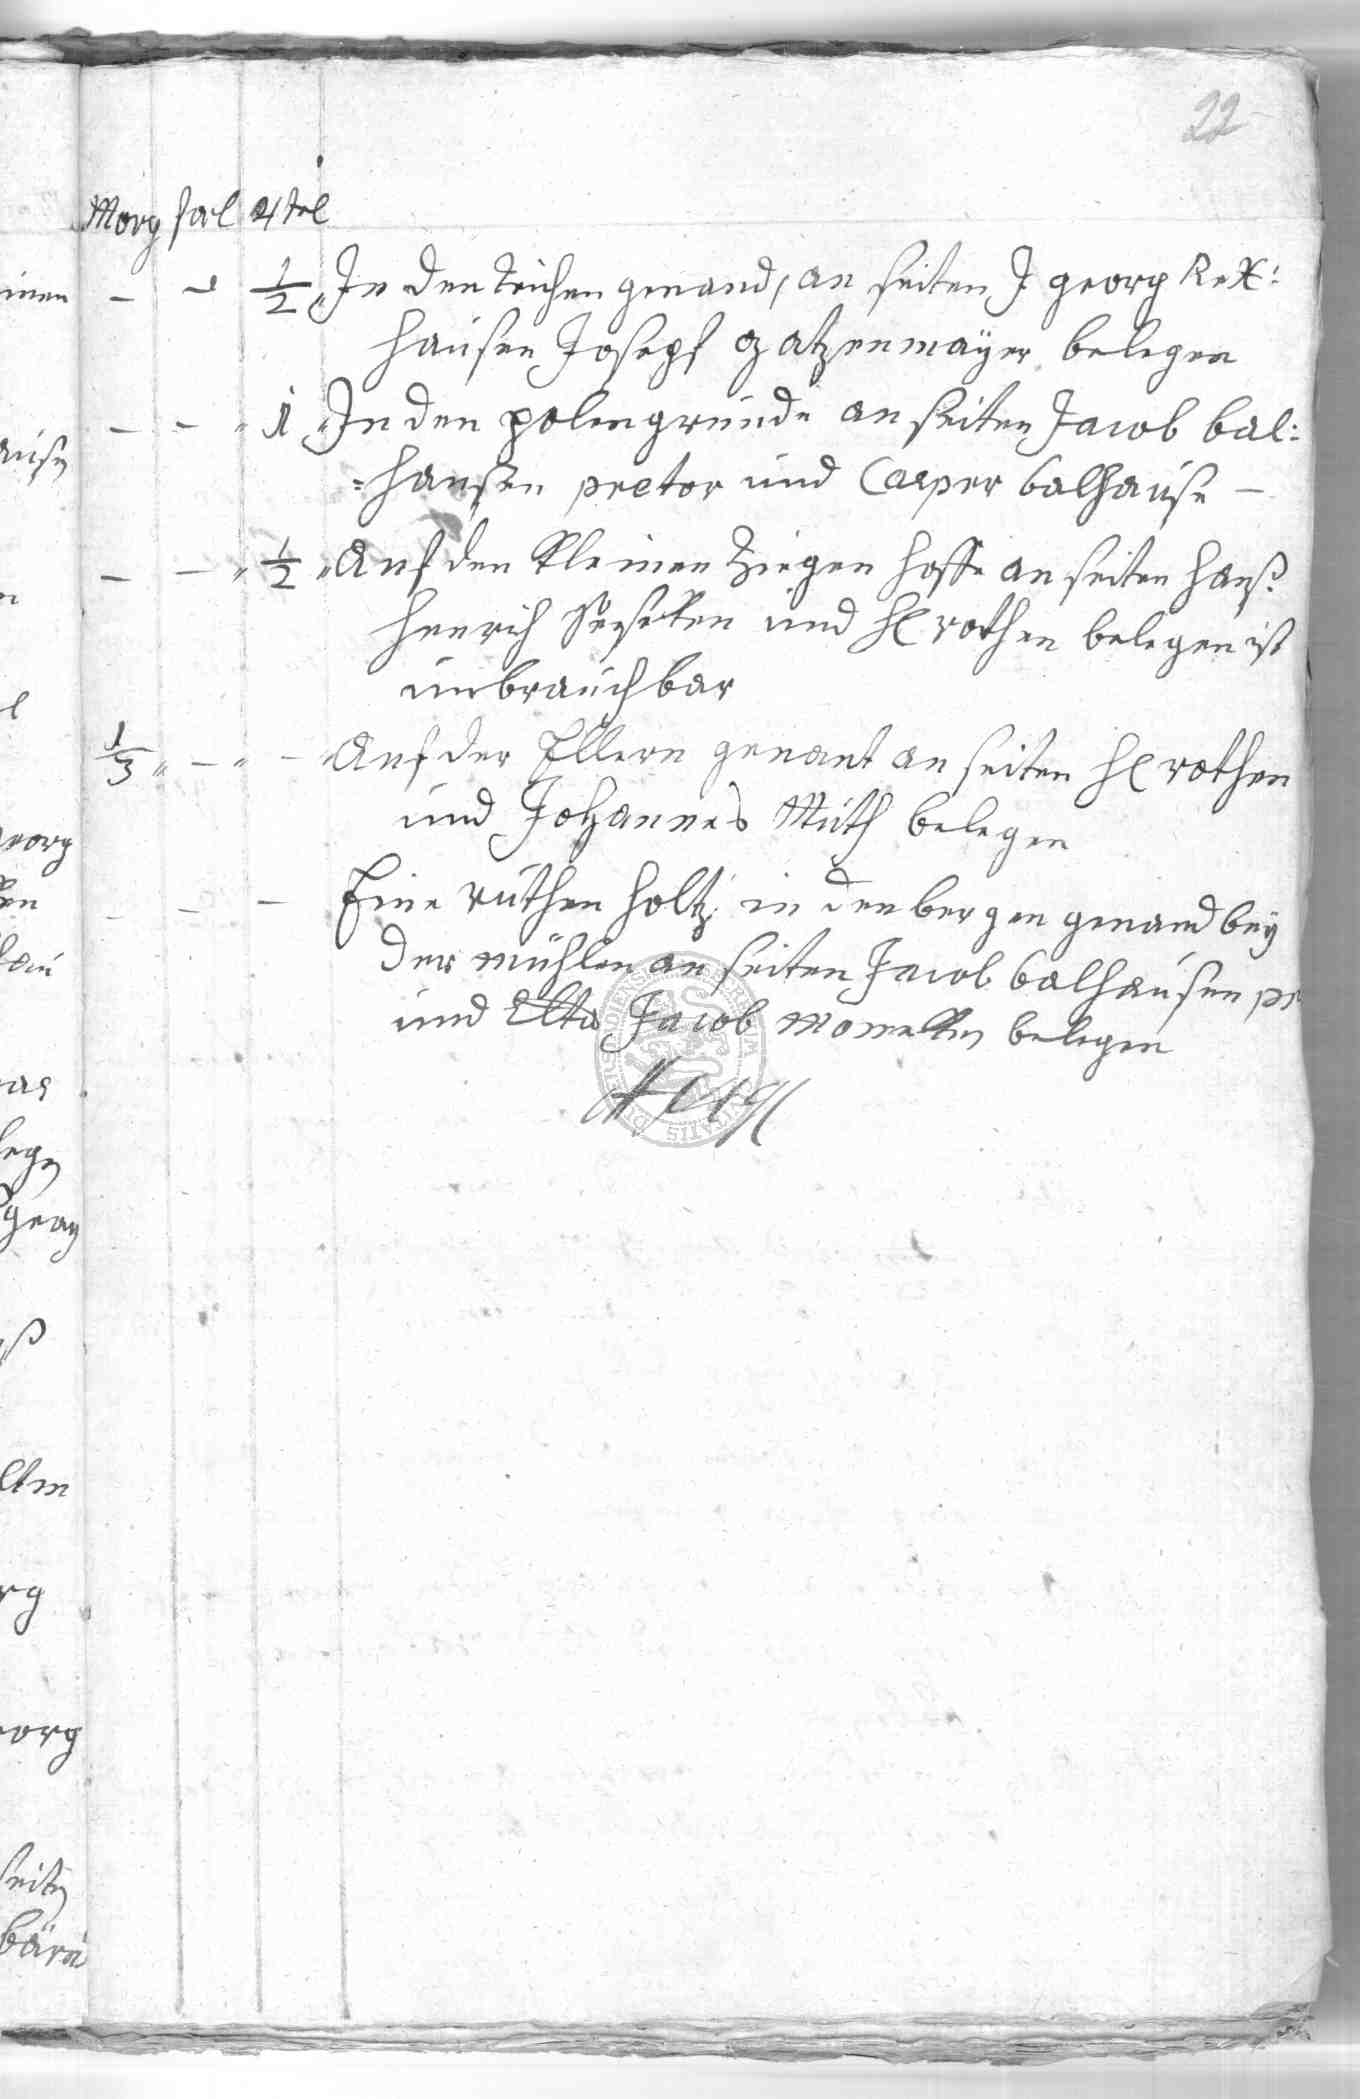 22
Morg sarl 4tel
- - 1/2 In den teichen genand, an seiten J georg Rex:
hausen Joseph gatzenmaÿer belegen
- - 1 In den polengrunde an seiten Jacob bal:
=hausen pretor und Casper balhause -
- - 1/2 Auf den Kleinen Ziegen hoffe an seiten hanß
henrich und H rothen belegen ist
unbrauchbar
1/3 - - Auf der Ellern genant an seiten H rothen
und Johannes Muth belegen
- - - Eine ruthen holtz in den bergen genand beÿ
der mühlen an seiten Jacob balhausen pr
und Jacob belegen